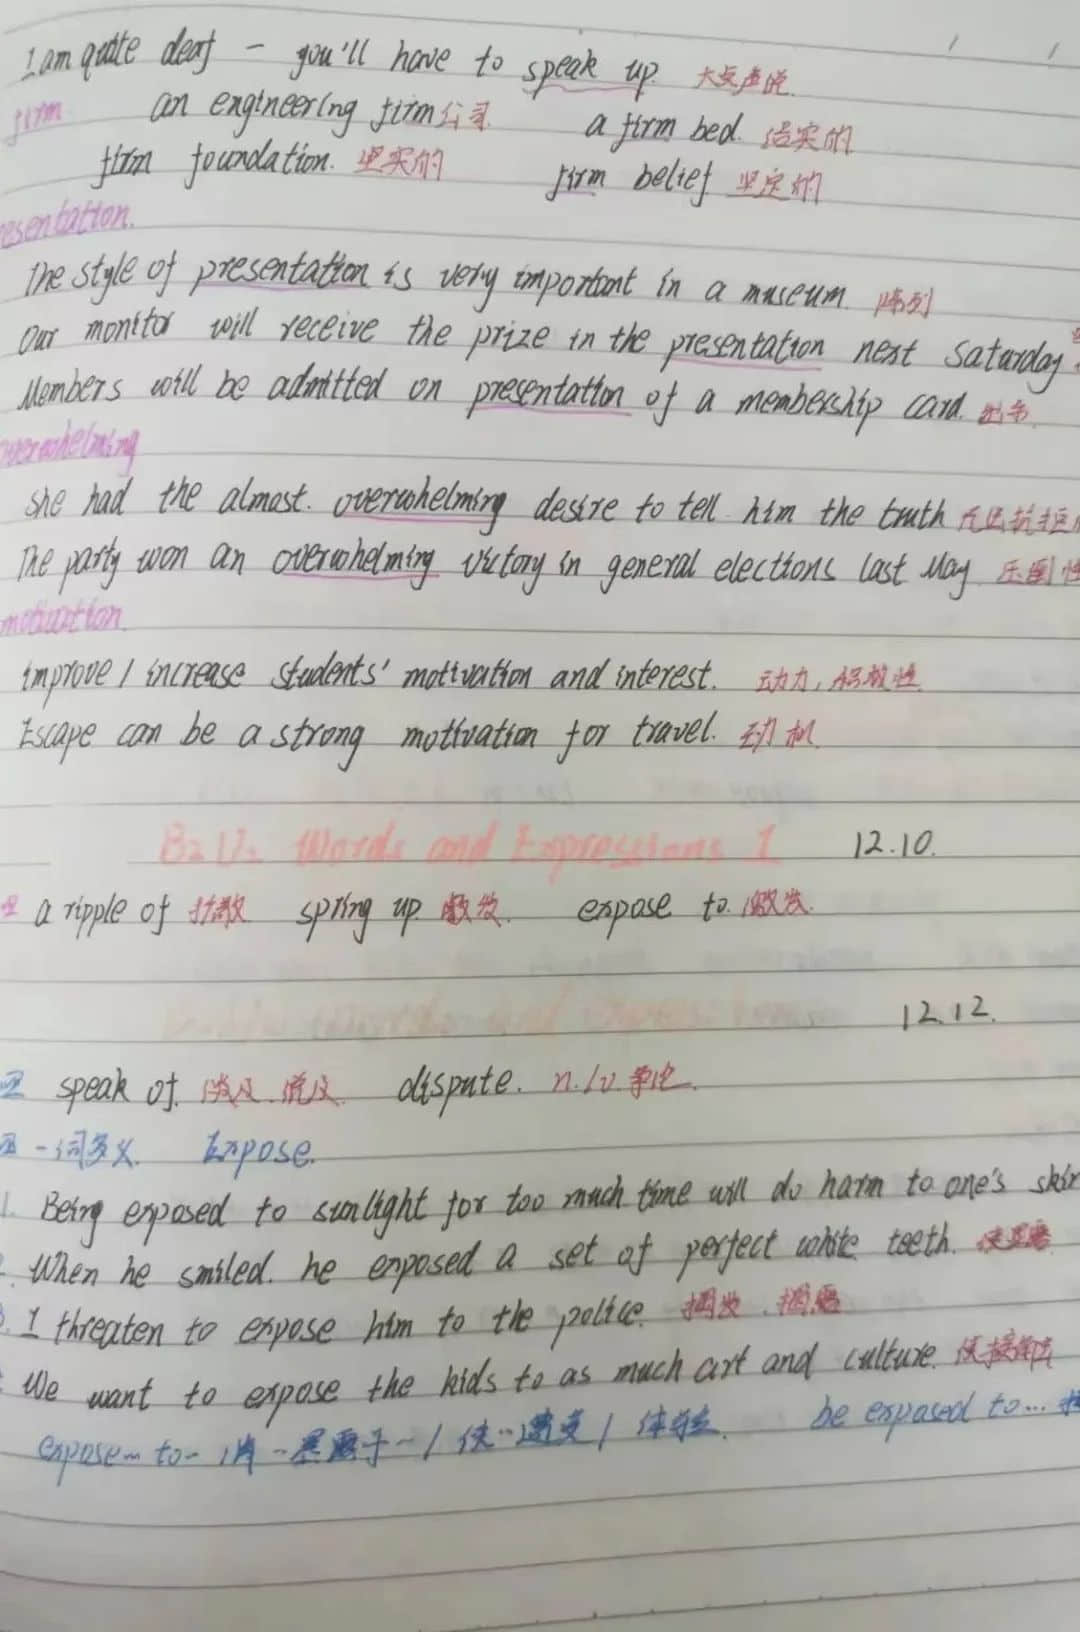 I am quite deaf — you'll have to speak up. 大点声说.
firm an engineering firm 公司 a firm bed. 结实的
firm foundation. 坚实的 firm belief 坚定的
esentation.
The style of presentation is very important in a museum. 陈列
Our monitor will receive the prize in the presentation next Saturday
Members will be admitted on presentation of a membership card. 出示.
overwhelming
She had the almost. overwhelming desire to tell him the truth 无法抗拒
The party won an overwhelming victory in general elections last May 压倒性
motivation.
improve / increase students' motivation and interest. 动力, 积极性
Escape can be a strong motivation for travel. 动机
Words and Expressions 1 12.10.
a ripple of 扩散 spring up 散发. expose to. 散发.
12.12.
speak of. 谈及. dispute. n./v. 争论.
一词多义. Expose.
1. Being exposed to sunlight for too much time will do harm to one's skin
2. When he smiled. he exposed a set of perfect white teeth. 使显露
3. I threaten to expose him to the police. 揭发. 揭露
We want to expose the kids to as much art and culture. 使接触
expose… to… 将…暴露于…/ 使…遭受 / 体验. be exposed to…